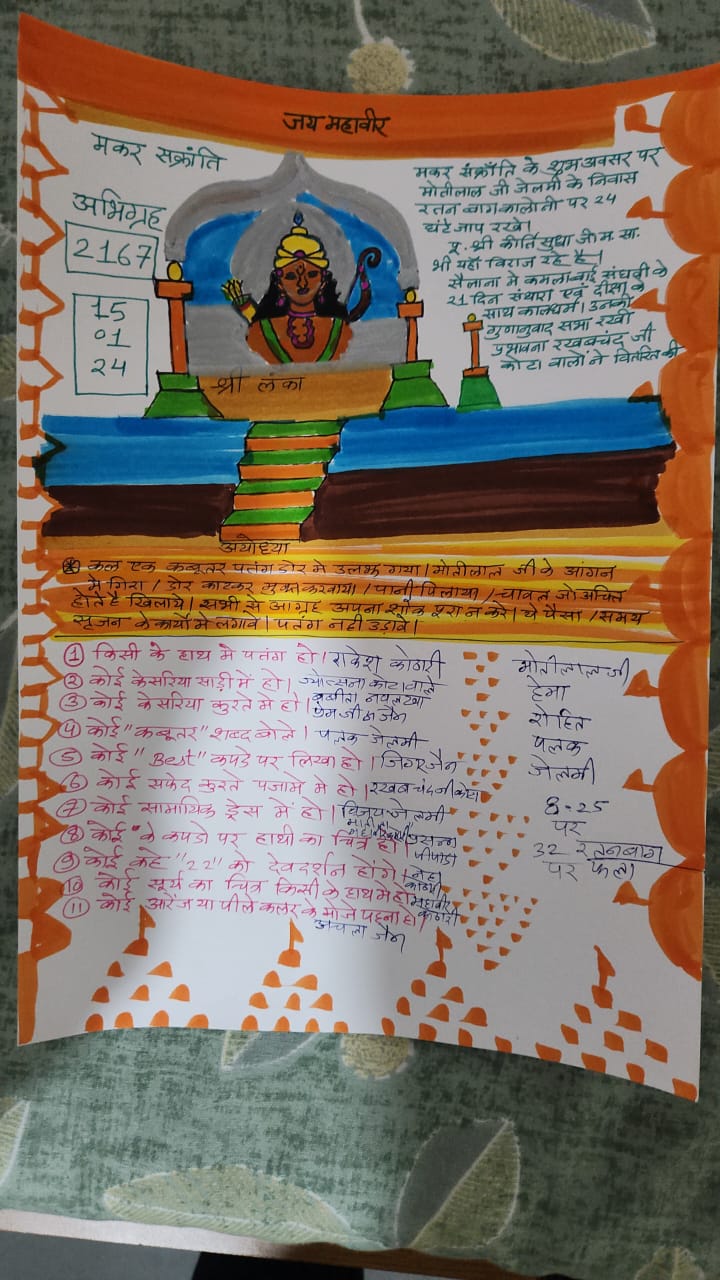 जय महावीर
मकर सक्रांति
अभिग्रह
2167
15
01
24
मकर संक्राँति के शुभ अवसर पर
मोतीलाल जी जेलमी के निवास
रतन बाग कालोनी पर 24
घंटे जाप रखे।
पू. श्री कीर्ति सुधा जी म. सा.
भी यहाँ विराज रहे है।
सैलाना मे कमला बाई संघवी के
21 दिन संथारा एवं दीक्षा के
साथ कालधर्म। उनकी
गुणानुवाद सभा रखी
प्रभावना रखबचंद जी
कोटा वालो ने वितरित की
श्री लंका
अयोध्या
कल एक कबूतर पतंग डोर मे उलझ गया। मोतीलाल जी के आंगन
मे गिरा / डोर काटकर मुक्त करवाया / पानी पिलाया / चावल जो अचित
होते है खिलाये। सभी से आग्रह अपना शोक पूरा न करे। ये पैसा / समय
सृजन के कार्यो मे लगावे। पतंग नही उड़ावे।
① किसी के हाथ मे पतंग हो। राकेश कोठारी
② कोई केसरिया साड़ी में हो। ज्योत्सना कोटा वाले
③ कोई केसरिया कुरते मे हो। बबीता नवलखा
प्रेम जी जैन
④ कोई "कबूतर" शब्द बोले। पलक जेलमी
⑤ कोई "Best" कपडे पर लिखा हो। जिगर जैन
⑥ कोई सफेद कुरते पजामे मे हो। रखब चंद जी कोटा
⑦ कोई सामायिक ड्रेस में हो। विजय जेलमी
⑧ कोई के कपडो पर हाथी का चित्र हो। प्रसन्न
⑨ कोई कहे "22" को देवदर्शन होंगे। नेहा
कोठारी
⑩ कोई सूर्य का चित्र किसी के हाथ मे हो। महावीर
कोठारी
⑪ कोई ऑरेंज या पीले कलर के मोजे पहना हो।
अचला जैन
मोतीलाल जी
हेमा
रोहित
पलक
जेलमी
8-25
पर
32 रतनबाग
पर फला